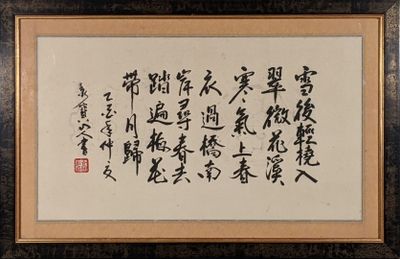 雪後輕橈入
翠微花溪
寒氣上春
衣過橋南
岸尋春去
踏遍梅花
帶月歸
年仲夏
書